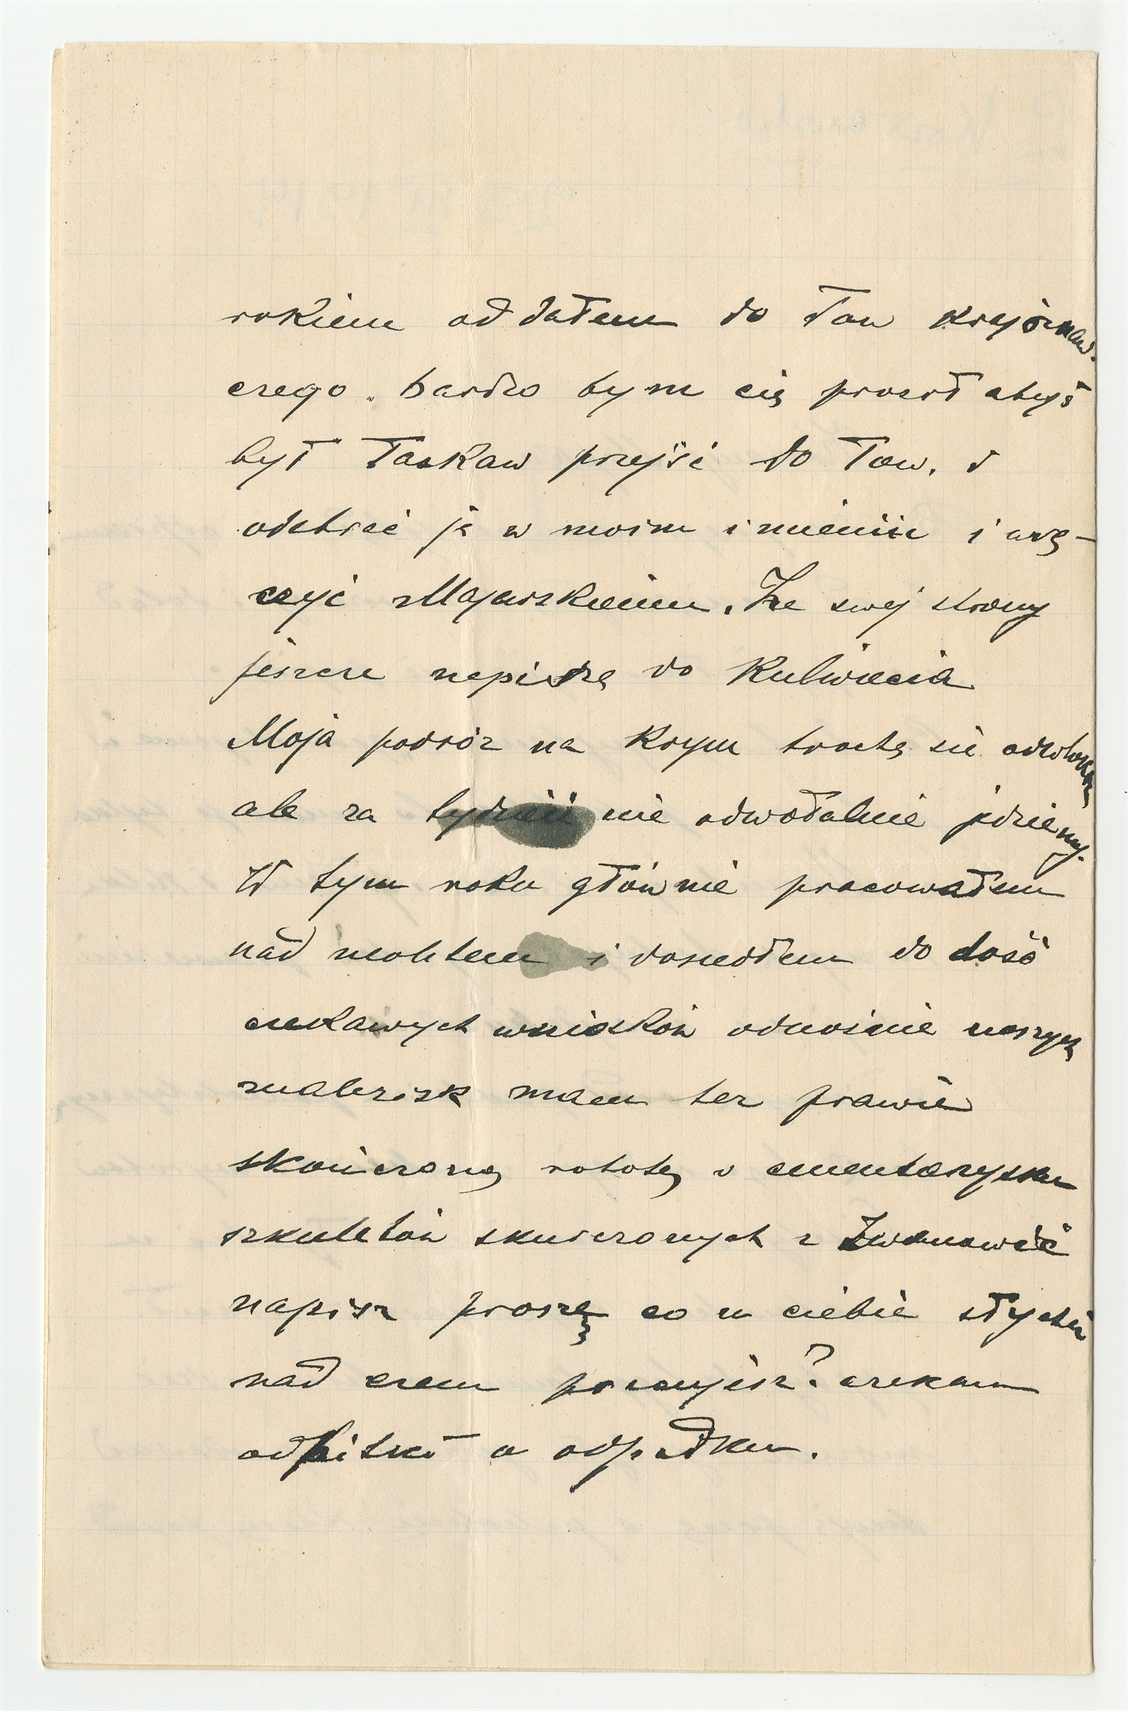 rokiem oddałem do Tow Krajoznaw-
czego. bardzo bym cię prosił abyś
był łaskaw przejść do Tow. i
odebrać ją w moim imieniu i wrę-
czyć Majewskiemu. Ze swej strony
jeszcze napiszę do Kulwiecia
Moja podróż na Krym trochę się odwlokła
ale za tydzień nieodwołalnie jedziemy.
W tym roku głównie pracowałem
nad neolitem i doszedłem do dość
ciekawych wniosków odnośnie naszych
znalezisk mam też prawie
skończoną robotę o cmentarzysku
szkieletów skurczonych z
napisz proszę co u ciebie słychać
nad czem pracujesz? czekam
odbitki o odpadku.